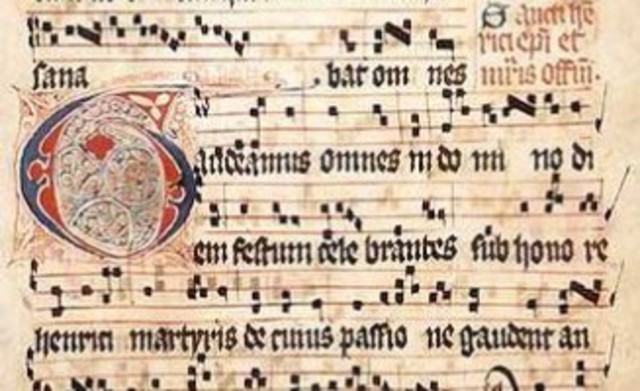 sana bat om nes
Sancti hē
rici epi et
mris offm.
Gaudeamus omnes in do mi no di
em festum cele brantes sub hono re
henrici martyris de cuius passio ne gaudent an